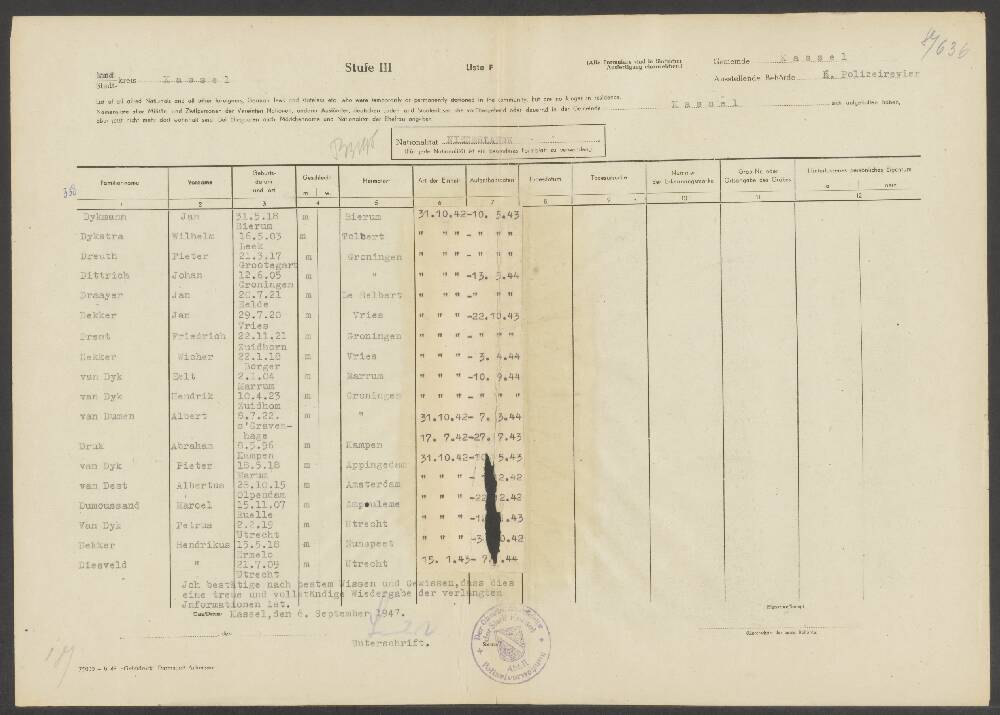 17636
Stufe III
Liste F
(Alle Formulare sind in fünffacher
Ausfertigung einzureichen)
Gemeinde Kassel
Land-
Stadt- kreis Kassel
Ausstellende Behörde 8. Polizeirevier
List of all allied Nationals and all other foreigners, German Jews and stateless etc. who were temporarily or permanently stationed in the community, but are no longer in residence.
Namensliste aller Militär- und Zivilpersonen der Vereinten Nationen, anderer Ausländer, deutschen Juden und Staatenloser, die vorübergehend oder dauernd in der Gemeinde Kassel sich aufgehalten haben,
aber jetzt nicht mehr dort wohnhaft sind. Bei Ehegatten auch Mädchenname und Nationalität der Ehefrau angeben.
Nationalität NIEDERLANDE
(Für jede Nationalität ist ein besonderes Formblatt zu verwenden)
Familienname Vorname Geburts-
datum
und -ort Geschlecht
m. w. Heimatort Art der Einheit Aufgethalten Todesdatum Todesursache Nummer
der Erkennungsmarke Grab-Nr. oder
Ortsangabe des Grabes Hinterlassenes persönliches Eigentum
ja nein
1 2 3 4 5 6 7 8 9 10 11 12
Dykmann Jan 31.5.18 m Bierum 31.10.42-10. 5.43
Bierum
Dykstra Wilhelm 16.5.03 m Tolbert " " " - " " "
Leek
Dreuth Pieter 21.3.17 m Groningen " " " - " " "
Grootegart
Dittrich Johan 12.6.05 m " " " " -13. 5.44
Groningen
Draayer Jan 20.7.21 m De Helbert " " " -" " "
Eelde
Dekker Jan 29.7.20 m Vries " " " -22.10.43
Vries
Drent Friedrich 22.11.21 m Groningen " " " - " " "
Zuidhorn
Dekker Wicher 22.1.18 m Vries " " " - 3. 4.44
Borger
van Dyk Eelt 2.1.04 m Marrum " " " -10. 9.44
Marrum
van Dyk Hendrik 10.4.23 m Groningen " " " - " " "
Zuidhom
van Dumen Albert 8.7.22. m " 31.10.42- 7. 3.44
s'Graven-
hage
17. 7.42-27. 7.43
Druk Abraham 8.5.96 m Kampen
Kampen
31.10.42-10 5.43
van Dyk Pieter 18.5.18 m Appingedam
Warum
" " " - 2.42
van Dest Albertus 28.10.15 m Amsterdam
Olpendam
" " " -22 12.42
Dumoussand Marcel 15.11.07 m Angouleme
Ruelle
" " " -1 .43
Van Dyk Petrus 2.2.19 m Utrecht
Utrecht
" " " -3 0.42
Dekker Hendrikus 13.5.18 m Nunspeet
Ermelo
15. 1.43- 7. .44
Diesveld " 21.7.09 m Utrecht
Utrecht
Jch bestätige nach bestem Wissen und Gewissen,dass dies
eine treue und vollständige Wiedergabe der verlangten
Jnformationen ist.
Kassel,den 6. September 1947.
den
Unterschrift.